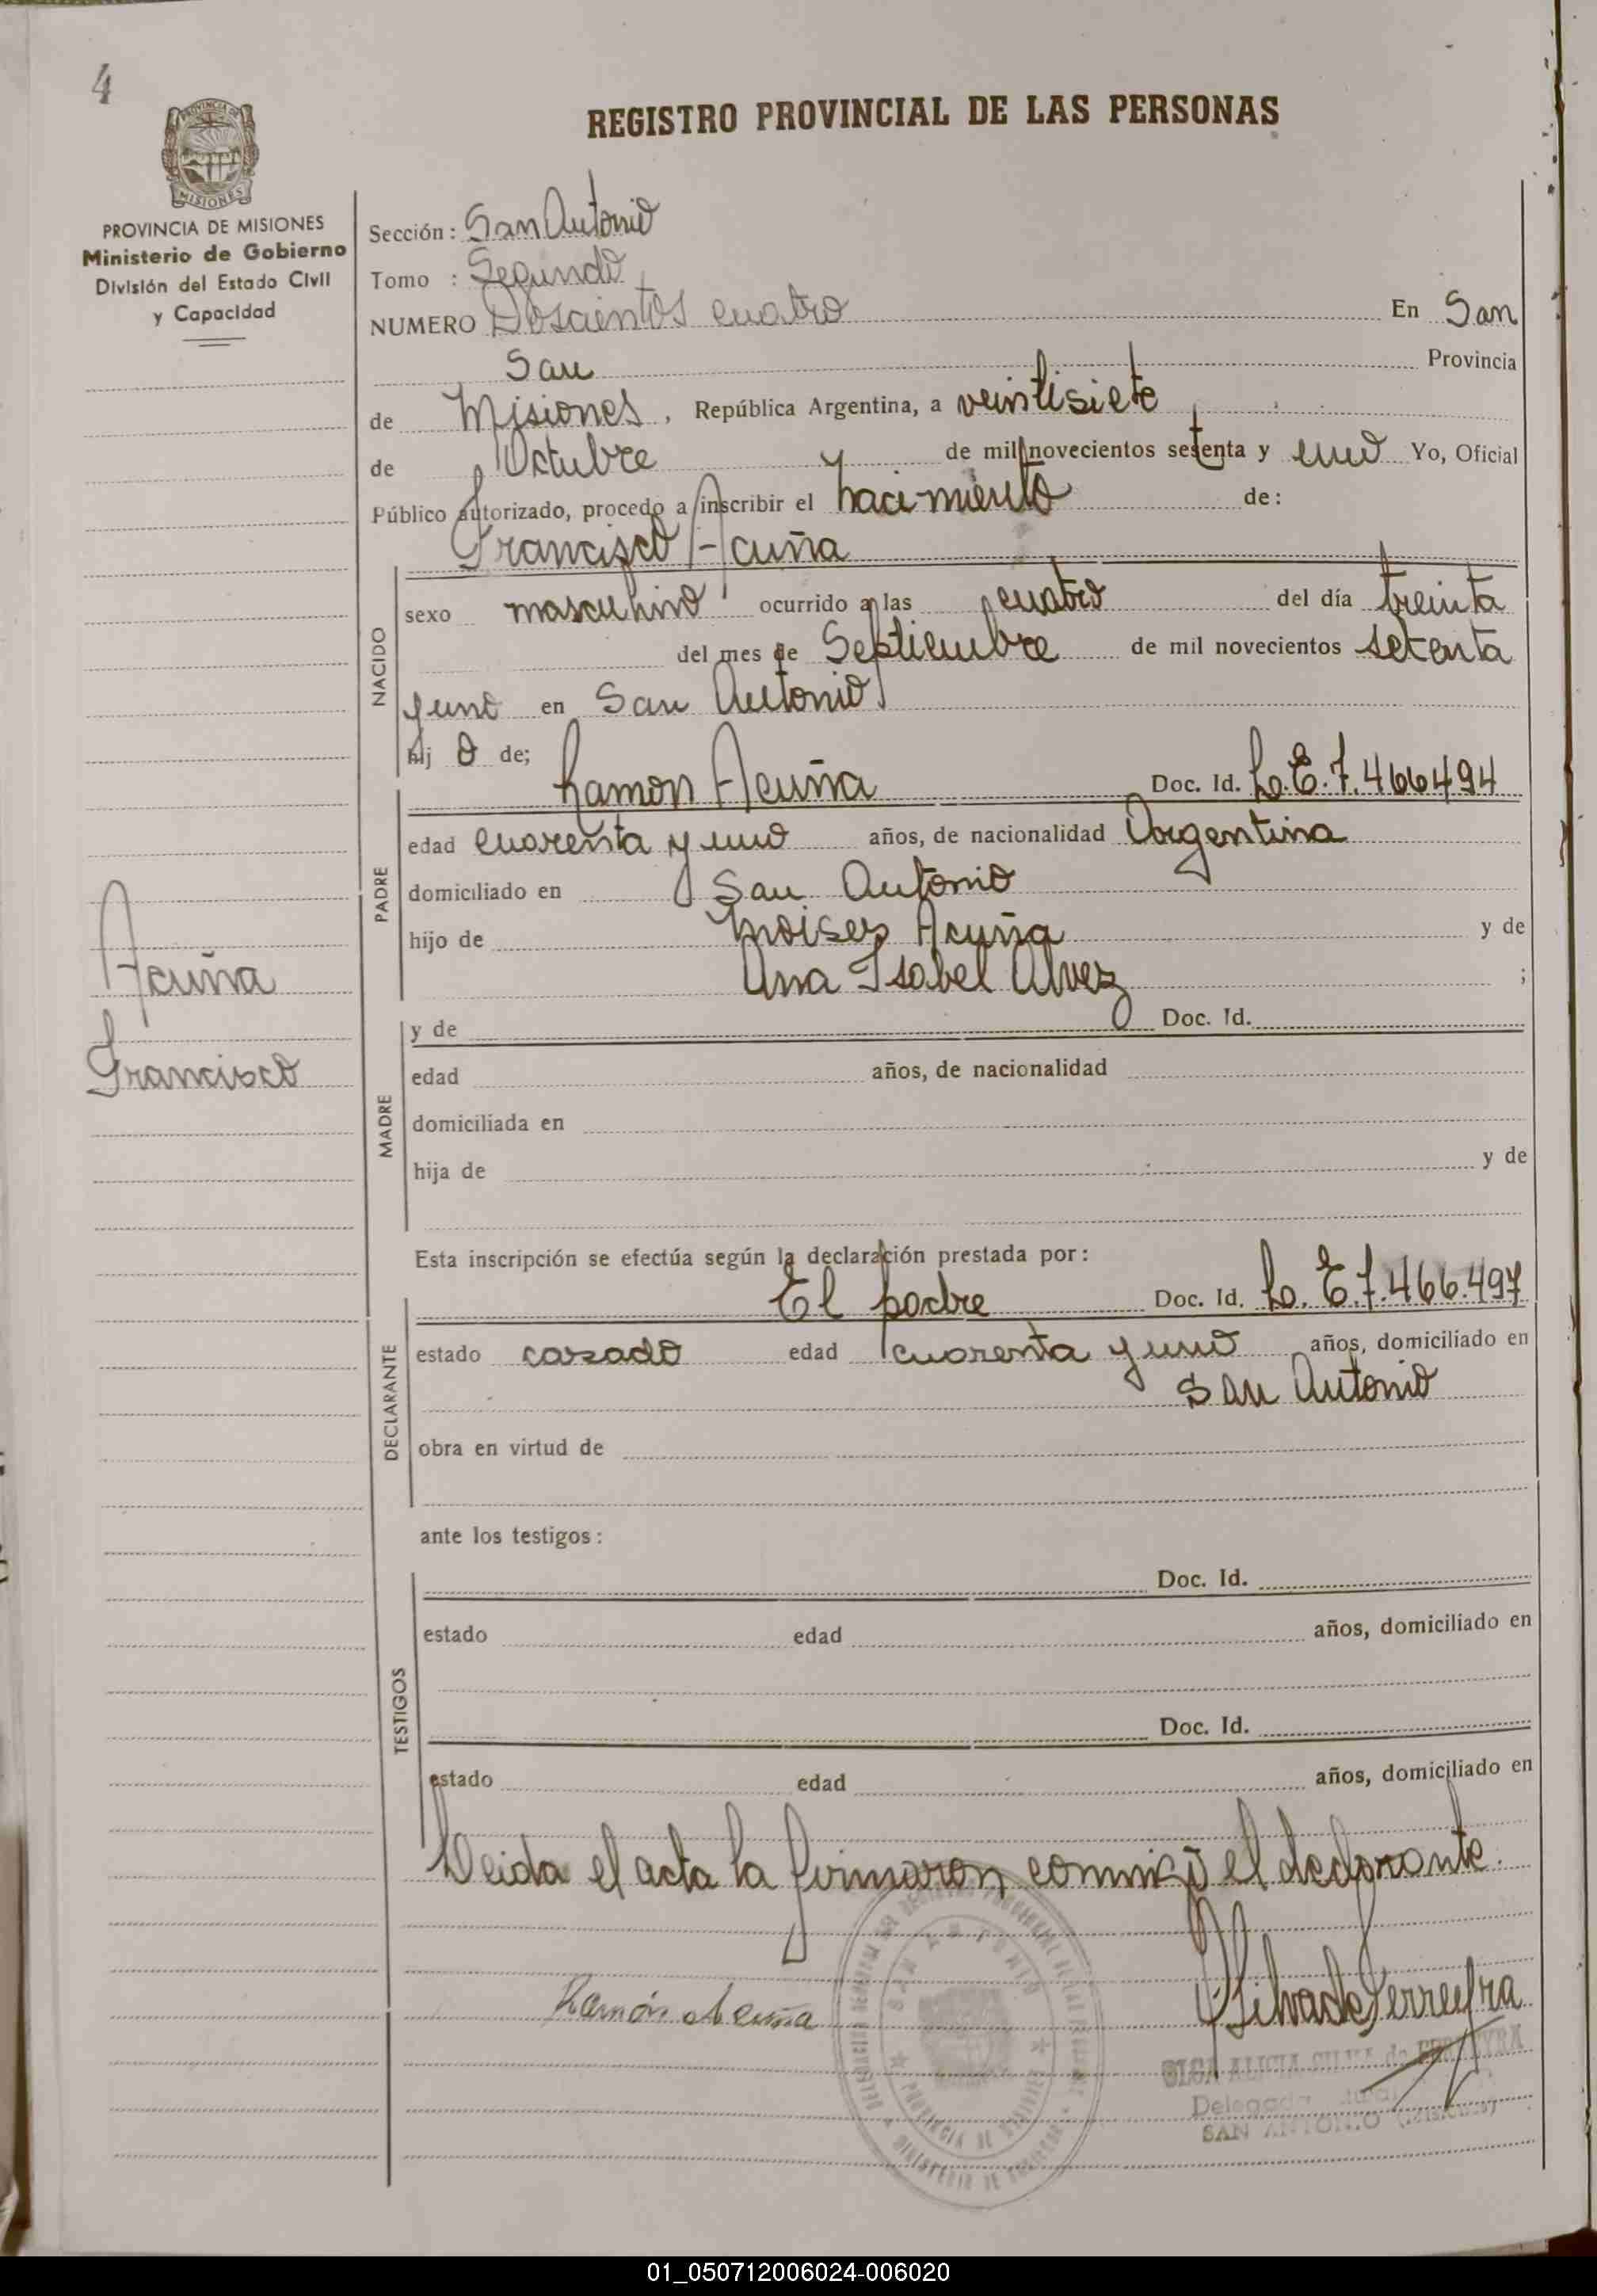 4
REGISTRO PROVINCIAL DE LAS PERSONAS
PROVINCIA DE MISIONES
Ministerio de Gobierno
División del Estado Civil
y Capacidad
Sección: San Antonio
Tomo : Segundo
NUMERO Doscientos cuatro En San
San Provincia
de Misiones, República Argentina, a veintisiete
de Octubre de mil novecientos setenta y uno Yo, Oficial
Público autorizado, procedo a inscribir el nacimiento de:
Francisco Acuña
NACIDO
sexo masculino ocurrido a las cuatro del día treinta
del mes de Septiembre de mil novecientos setenta
y uno en San Antonio
hij o de;
Ramon Acuña Doc. Id. L.E.7.466494
PADRE
edad cuarenta y uno años, de nacionalidad Argentina
domiciliado en San Antonio
hijo de Moises Acuña y de
Ana Isabel Alvez ;
Acuña
Francisco
MADRE
y de Doc. Id.
edad años, de nacionalidad
domiciliada en
hija de y de
Esta inscripción se efectúa según la declaración prestada por:
El padre Doc. Id. L.E.7.466.497
DECLARANTE
estado casado edad cuarenta y uno años, domiciliado en
San Antonio
obra en virtud de
ante los testigos:
TESTIGOS
Doc. Id.
estado edad años, domiciliado en
Doc. Id.
estado edad años, domiciliado en
Leida el acta la firmaron conmigo el declarante.
Ramón Acuña
OSilva de Ferreyra
OLGA ALICIA SILVA de FERREYRA
Delegada Rural
SAN ANTONIO (Misiones)
SAN ANTONIO
PROVINCIA DE MISIONES
MINISTERIO DE GOBIERNO
01_050712006024-006020